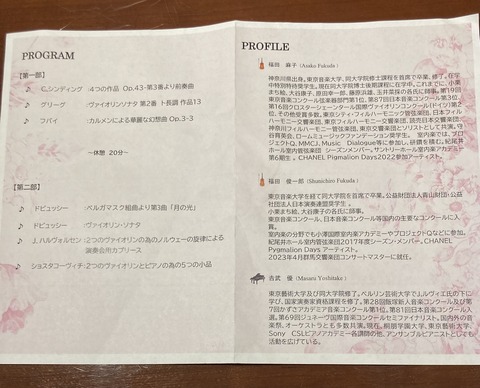 PROGRAM
【第一部】
♪ C.シンディング :4つの作品 Op.43-第3番より前奏曲
♪ グリーグ :ヴァイオリンソナタ 第2番 ト長調 作品13
♪ フバイ :カルメンによる華麗な幻想曲 Op.3-3
~休憩 20分~
【第二部】
♪ ドビュッシー :ベルガマスク組曲より第3曲「月の光」
♪ ドビュッシー :ヴァイオリン・ソナタ
♪ J.ハルヴォルセン:2つのヴァイオリンの為のノルウェーの旋律による
演奏会用カプリース
♪ ショスタコーヴィチ:2つのヴァイオリンとピアノの為の5つの小品
PROFILE
福田 麻子 (Asako Fukuda)
神奈川県出身。東京音楽大学、同大学院修士課程を首席で卒業、修了。在学
中特別特待奨学生。現在同大学院博士後期課程に在学中。これまでに、小栗
まち絵、大谷康子、原田幸一郎、藤原浜雄、玉井菜採の各氏に師事。第19回
東京音楽コンクール弦楽器部門第1位、第87回日本音楽コンクール第3位、
第16回クロスターシェーンタール国際ヴァイオリンコンクール(ドイツ)第2
位、その他受賞多数。東京シティ・フィルハーモニック管弦楽団、日本フィル
ハーモニー交響楽団、東京フィルハーモニー交響楽団、読売日本交響楽団、
神奈川フィルハーモニー管弦楽団、東京交響楽団とソリストとして共演。守
谷育英会、ロームミュージックファンデーション奨学生。 室内楽では、プロ
ジェクトQ、MMCJ、Music Dialogue等に参加し、研鑽を積む。紀尾井
ホール室内管弦楽団 シーズンメンバー。サントリーホール室内楽アカデミー
第6期生。CHANEL Pygmalion Days2022参加アーティスト。
福田 俊一郎 (Shunichiro Fukuda)
東京音楽大学を経て同大学院を首席で卒業。公益財団法人青山財団・公益
社団法人日本演奏連盟奨学生。
小栗まち絵、大谷康子の各氏に師事。
東京音楽コンクール、日本音楽コンクール等国内の主要なコンクールに入
賞。
室内楽の分野でも小澤国際室内楽アカデミーやプロジェクトQなどに参加。
紀尾井ホール室内管弦楽団2017年度シーズン・メンバー。CHANEL
Pygmalion Days アーティスト。
2023年4月群馬交響楽団コンサートマスターに就任。
吉武 優 (Masaru Yoshitake)
東京藝術大学及び同大学院修了。ベルリン芸術大学でJ.ルヴィエ氏の下に
学び、国家演奏家資格課程を修了。第28回飯塚新人音楽コンクール及び第
7回かずさアカデミア音楽コンクール第1位。第81回日本音楽コンクール入
選。第69回ジュネーヴ国際音楽コンクールセミファイナリスト。国内外の音
楽祭、オーケストラとも多数共演。現在、桐朋学園大学、東京藝術大学、
Sony CSLピアノアカデミー各講師の他、アンサンブルピアニストとしても
活動を広げている。